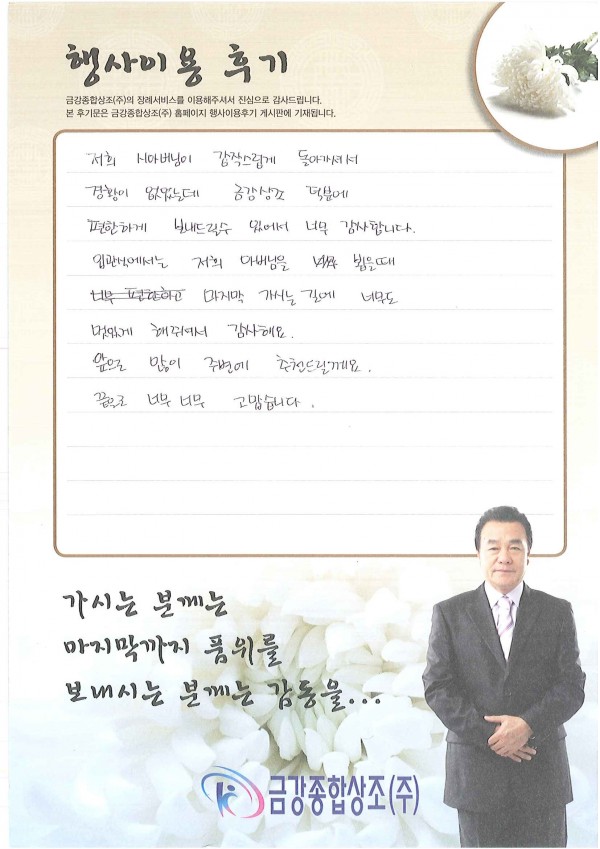 행사이용 후기
금강종합상조(주)의 장례서비스를 이용해주셔서 진심으로 감사드립니다.
본 후기문은 금강종합상조(주) 홈페이지 행사이용후기 게시판에 기재됩니다.
저희 시아버님이 갑작스럽게 돌아가셔서
경황이 없었는데 금강상조 덕분에
편안하게 보내드릴수 있어서 너무 감사합니다.
입관식에서는 저희 아버님을 뵈었을때
너무 편안하고 마지막 가시는 길에 너무도
멋있게 해줘여서 감사해요.
앞으로 많이 주변에 추천드릴께요.
끝으로 너무 너무 고맙습니다.
가시는 분께는
마지막까지 품위를
보내시는 분께는 감동을...
금강종합상조(주)